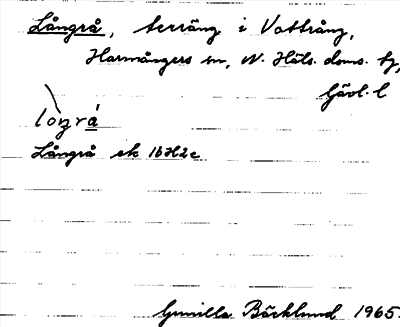 Långrå, terräng i Vattrång,
Harmångers sn, N. Häls. doms. tg,
Gävl. l
lòŋrá
Långrå ek 16H2c
Gunilla Bäcklund 1965.